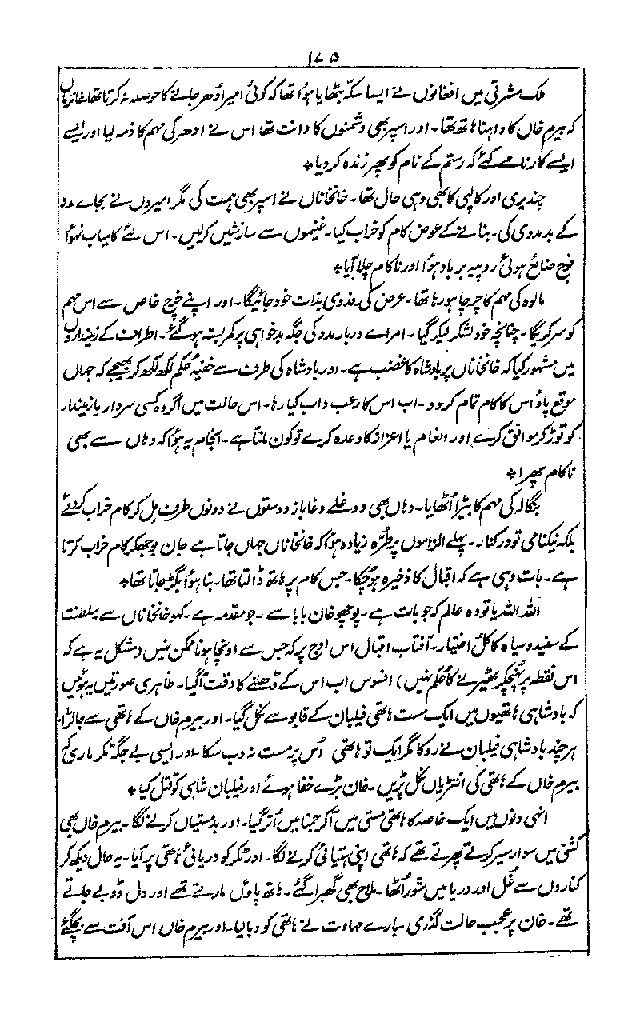 ۱۷۵
ملک مشرقی میں افغانوں نے ایسا سکہ بٹھایا ہوا تھا کہ کوئی امیر اُدھر جانے کا حوصلہ نہ کرتا تھا۔ خانزماں
کہ بیرم خاں کا داہنا ہاتھ تھا۔ اور اسپر بھی دشمنوں کا دانت تھا اس نے ادھر کی مہم کا ذمہ لیا اور ایسے
ایسے کارنامے کئے کہ رستم کے نام کو پھر زندہ کر دیا ٭
چندیری اور کالپی کا بھی وہی حال تھا۔ خانخاناں نے اسپر بھی ہمت کی مگر امیروں نے بجاے مدد
کے بدمددی کی۔ بنانے کے عوض کام کو خراب کیا۔ غنیموں سے سازشیں کرلیں۔ اس لئے کامیاب نہوُا
فوج ضائع ہوئی روپیہ برباد ہوُا اور ناکام چلا آیا ٭
مالوہ کی مہم کا چرچا ہو رہا تھا۔ عرض کی فدوی بذات خود جائیگا۔ اور اپنے خرچ خاص سے اس مہم
کو سر کریگا۔ چنانچہ خود لشکر لیکر گیا۔ امراے دربار مدد کی جگہ بدخواہی پر کمربستہ ہو گئے۔ اطراف کے زمینداروں
میں مشہور کیا کہ خانخاناں پر بادشاہ کا غضب ہے۔ اور بادشاہ کی طرف سے خفیہ حکم لکھ لکھ کر بھیجے کہ جہاں
موقع پاؤ اس کا کام تمام کر دو۔ اب اس کا رعب داب کیا رہا۔ اس حالت میں اگر وہ کسی سردار یا زمیندار
کو توڑ کر موافق کرے اور انعام یا اعزاز کا وعدہ کرے تو کون مانتا ہے۔ انجام یہ ہوُا کہ وہاں سے بھی
ناکام پھرا ٭
بنگالہ کی مہم کا بیڑا اُٹھایا۔ وہاں بھی دوغلے دغاباز دوستوں نے دونوں طرف مل کر کام خراب کر دئے
بلکہ نیکنامی تو درکنار۔ پہلے الزاموں پر طرّہ زیادہ ہوُا کہ خانخاناں جہاں جاتا ہے جان بوجھکر کام خراب کرتا
ہے۔ بات وہی ہے کہ اقبال کا ذخیرہ ہو چکا۔ جس کام پر ہاتھ ڈالتا تھا۔ بنا ہوُا بگڑ جاتا تھا ٭
اللہ اللہ یا تو وہ عالم کہ جو بات ہے۔ پوچھو خان بابا سے۔ جو مقدمہ ہے۔ کہو خانخاناں سے سلطنت
کے سفید و سیاہ کا کُل اختیار۔ آفتاب اقبال اس اوج پر کہ جس سے اونچا ہونا ممکن نہیں (مشکل یہ ہے کہ
اس نقطہ پر پہنچکر ٹھیرنے کا حکم نہیں) افسوس اب اس کے ڈھلنے کا وقت آ گیا۔ ظاہری صورتیں یہ ہوئیں
کہ بادشاہی ہاتھیوں میں ایک مست ہاتھی فیلبان کے قابو سے نکل گیا۔ اور بیرم خاں کے ہاتھی سے جا لڑا
ہر چند بادشاہی فیلبان نے روکا مگر ایک تو ہاتھی اُس پر مست نہ دب سکا۔ اور ایسی بے جگہ ٹکر ماری کہ
بیرم خاں کے ہاتھی کی انتڑیاں نکل پڑیں۔ خان بڑے خفا ہوئے اور فیلبان شاہی کو قتل کیا ٭
انہی دنوں میں ایک خاصہ کا ہاتھی مستی میں آکر جمنا میں اُتر گیا۔ اور بدمستیاں کرنے لگا۔ بیرم خاں بھی
کشتی میں سوار سیر کرتے پھرتے تھے کہ ہاتھی اپنی ہتیائی کرنے لگا۔ اور ٹکر کو دریائی ہاتھی پر آیا۔ یہ حال دیکھ کر
کناروں سے غُل اور دریا میں شور اُٹھا۔ ملاح بھی گھبرا گئے۔ ہاتھ پاؤں مارتے تھے اور دل ڈوبے جاتے
تھے۔ خان پر عجب حالت گذری بارے مہاوت نے ہاتھی کو دبا لیا۔ اور بیرم خاں اس آفت سے بچ گئے